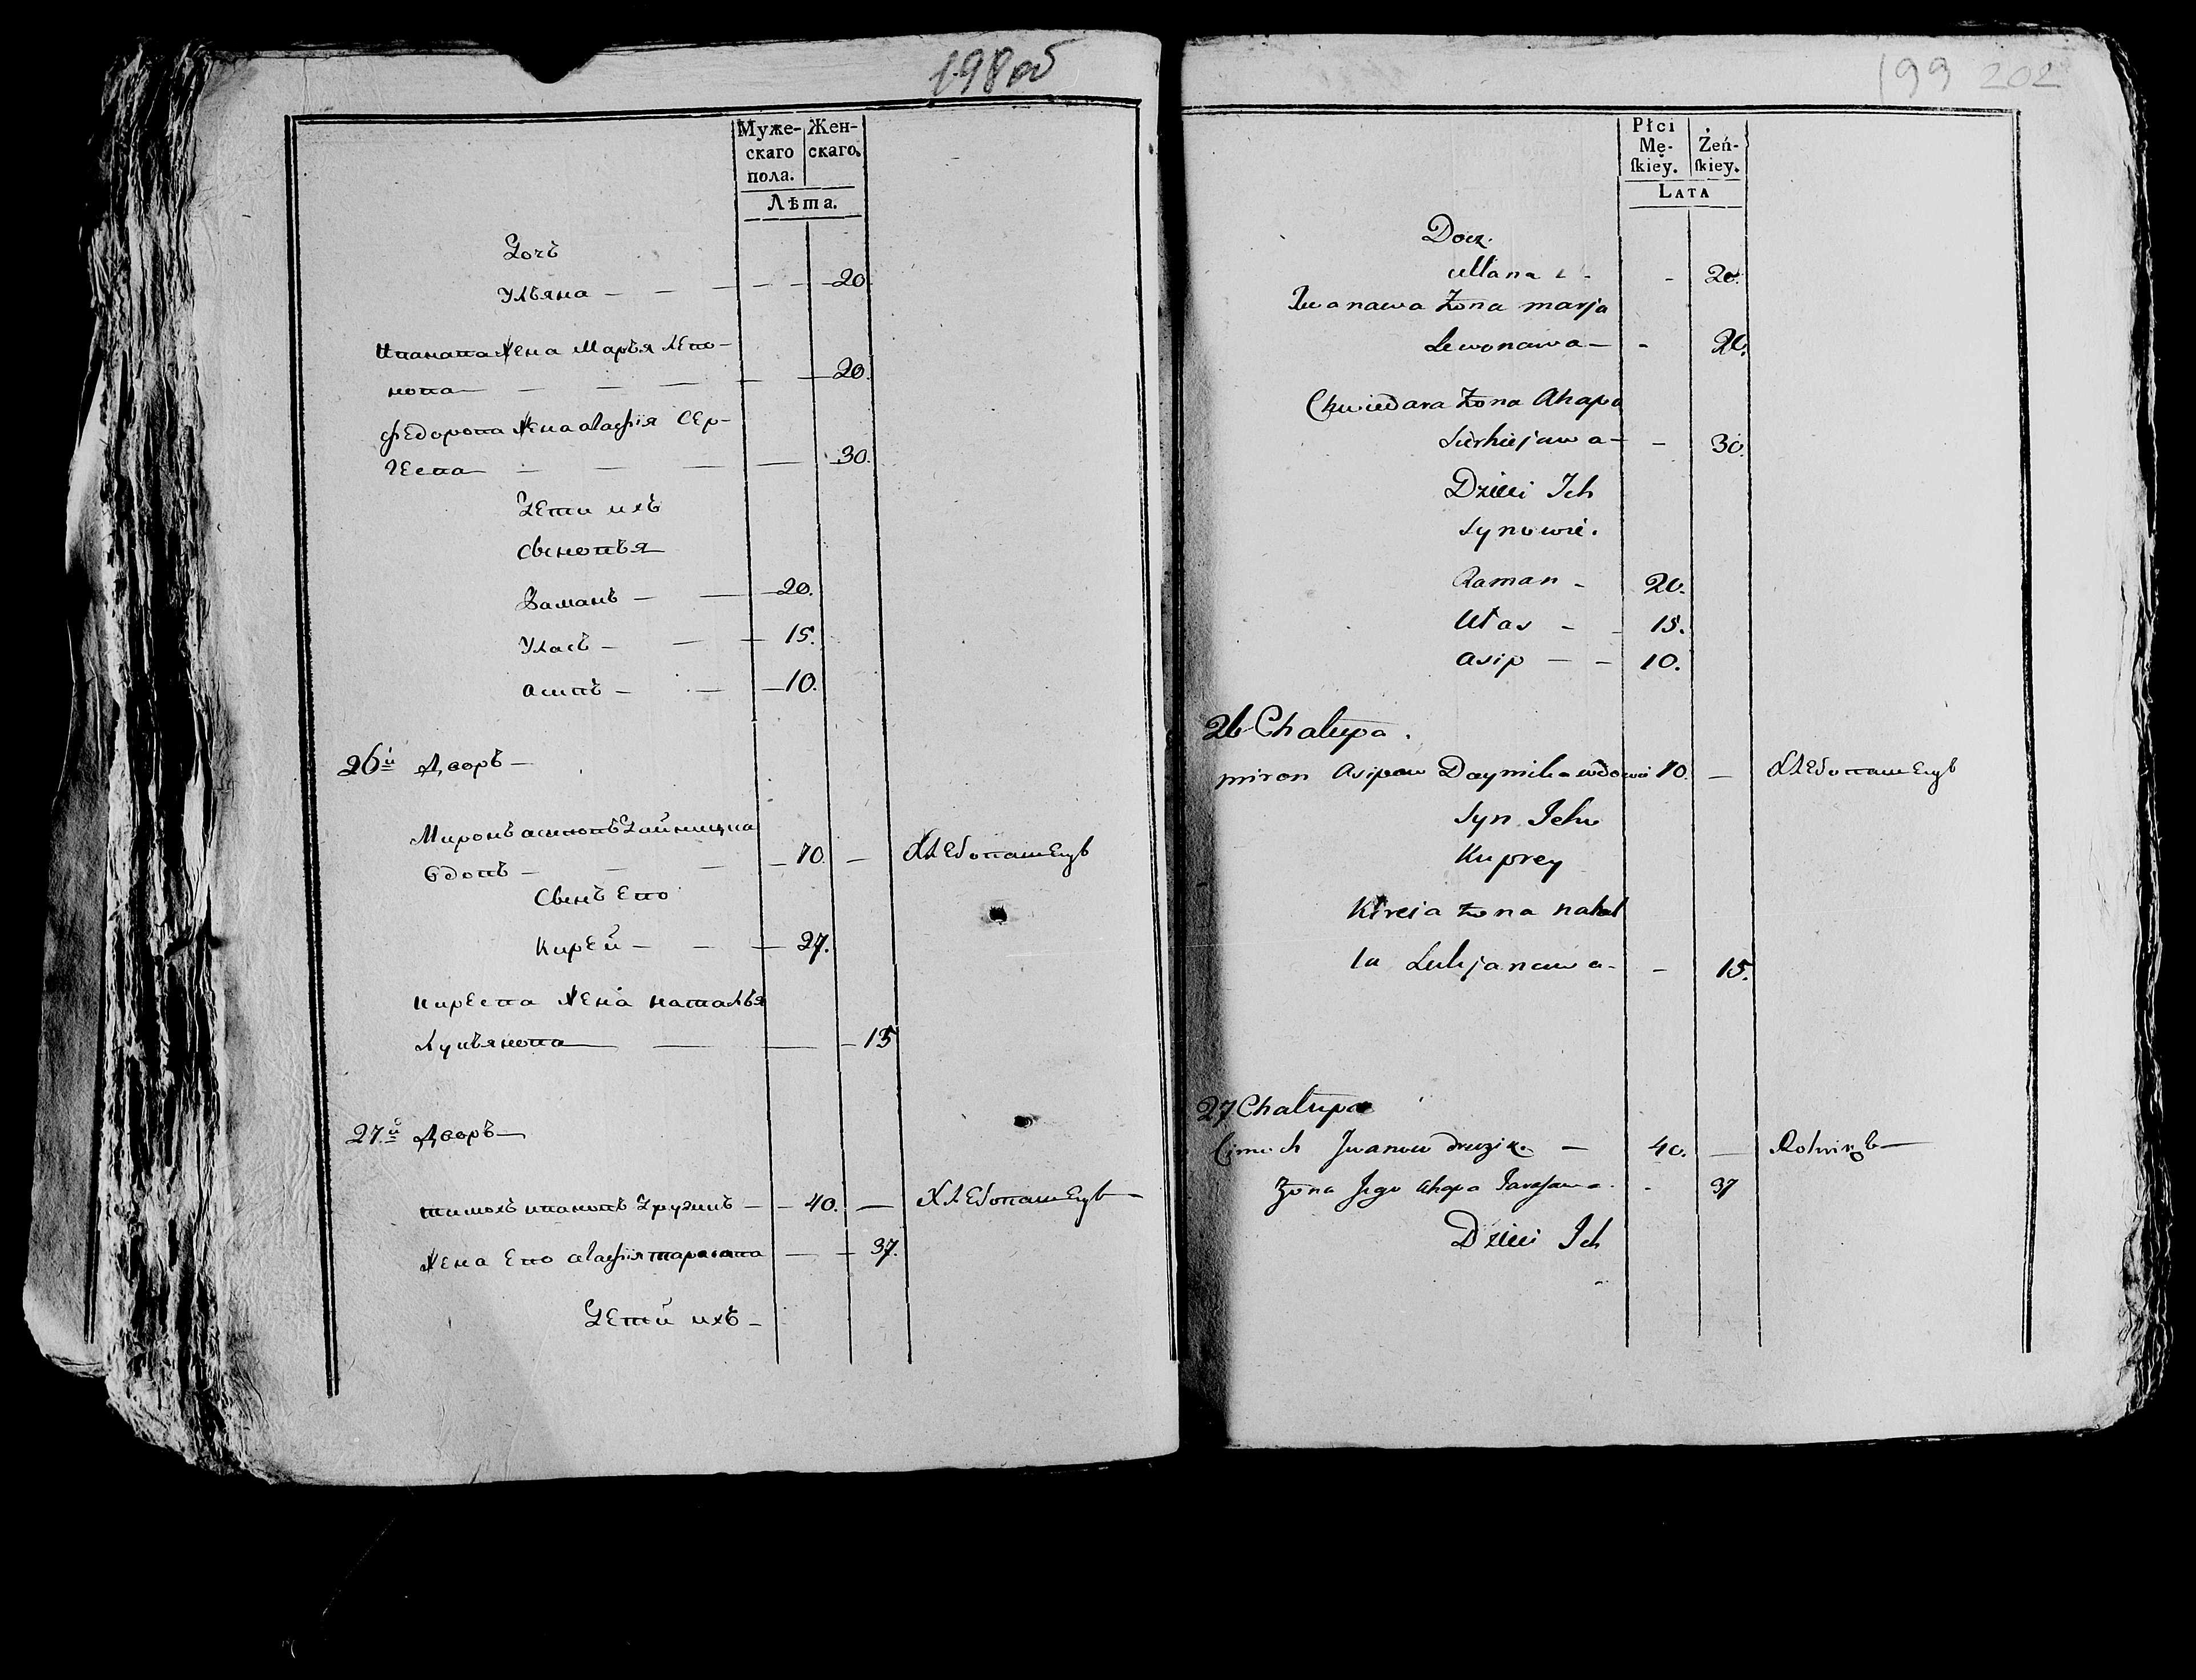 198 об
Муже- Жен-
скаго скаго.
пола.
Лѣта.
Дочь
Ульяна — — — — — 20
Иванава жена Марья Лево-
нова — — — — — 20.
Федорова жена Агафія Сер-
геева — — — — — 30.
Дети ихъ
Сыновья
Раманъ — — 20.
Уласъ — — 15.
Асипъ — — 10.
26й Дворъ —
Миронъ Асиповъ
Вдовъ — — — 70. — Хлебопашецъ
Сынъ Ево
Кирей — — — 27.
Киреева жена Наталья
Лукьянова — — — 15
27й Дворъ —
Тимохъ Ивановъ Дружикъ — — 40. — Хлебопашецъ —
Жена Ево Агафія Тарасова — — 37.
Дети ихъ —
199 202
Płci Żeń-
Mę- skiey.
skiey.
LATA
Docz.
Ullana - - 20.
Iwanawa Żona marja
Lewonawa — - 20.
Chwiedara Żona Ahapa
Sierhiejawa — - 30.
Dzieci Ich
Synowie.
Raman - 20.
Ułas - - 15.
Asip — - 10.
26 Chalupa.
miron Asipow wdowi 70. — Хлебопашецъ
Syn Jeho
Kuprey
Kireia Żona natal
la Lukjanawa - - 15.
27 Chalupa
Cimoch Iwanow Druzik — 40. — Rolnik —
Żona Jego Ahapa Tarasawa - 37
Dzieci Ich